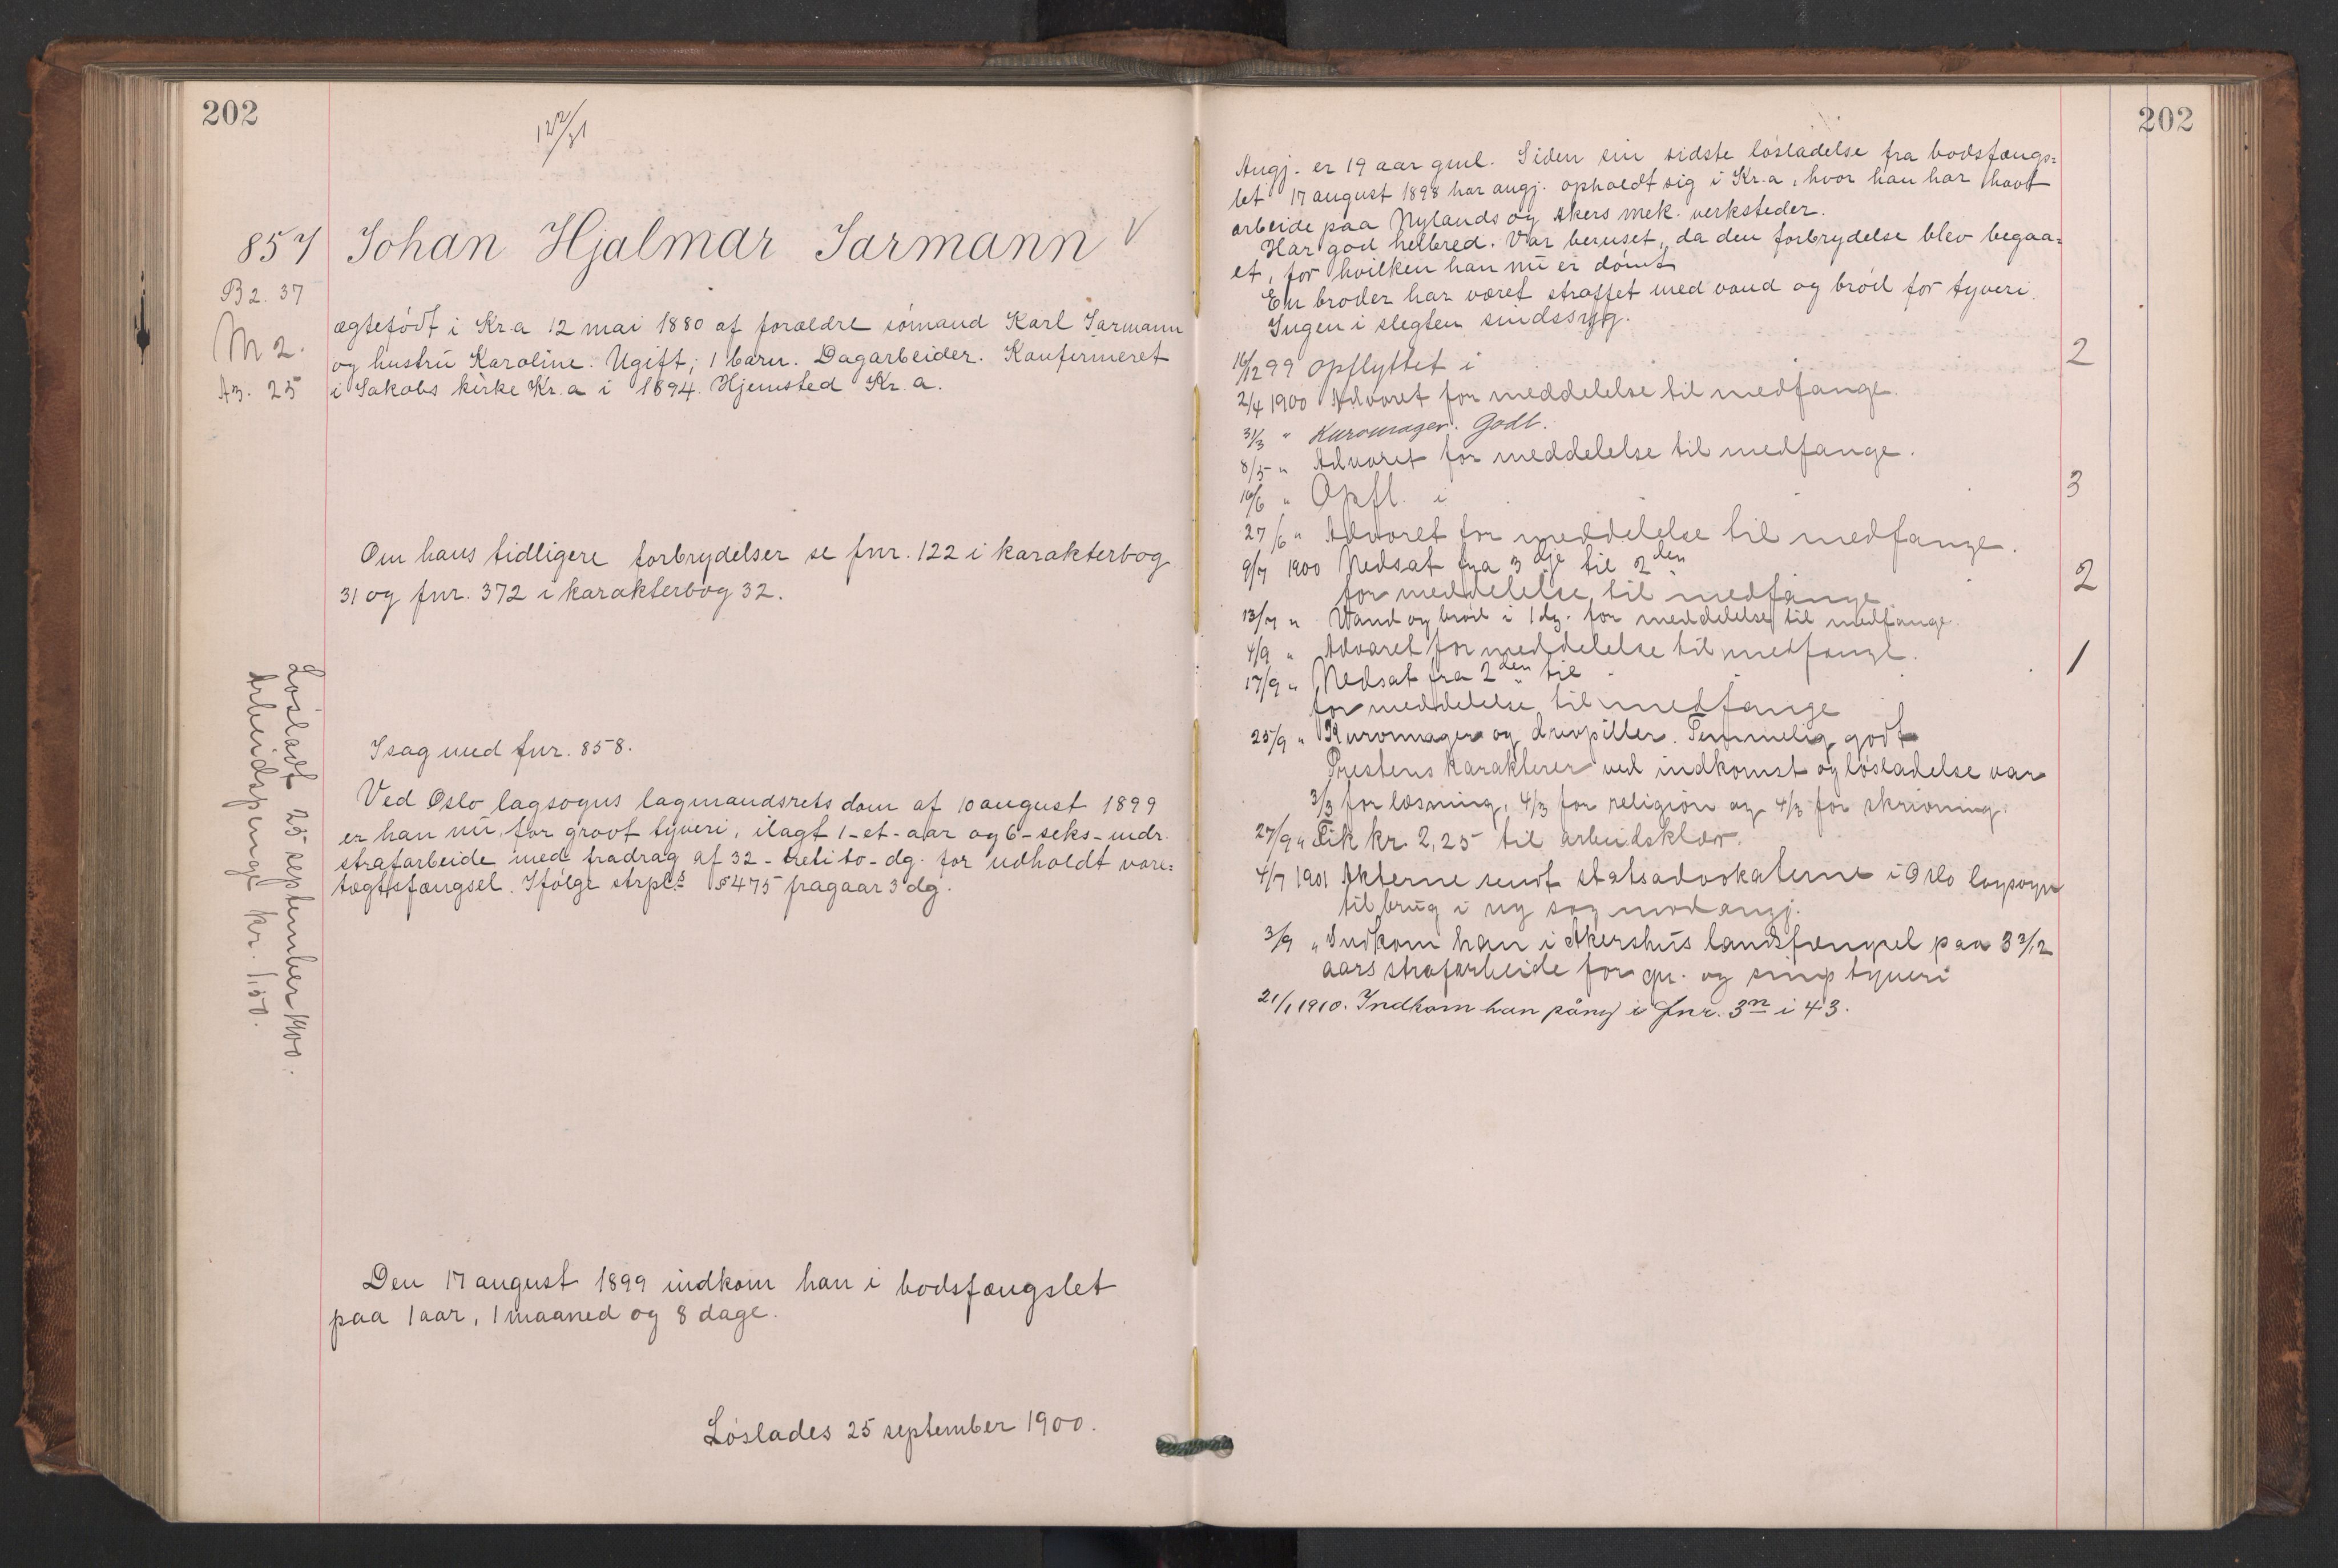 202
122/31
857 Johan Hjalmar Jarmann
B2. 37
M 2.
A3. 25
ægtefødt i Kr.a 12 mai 1880 af forældre sømand Karl Jarmann
og hustru Karoline. Ugift; 1 barn. Dagarbeider. Konfirmeret
i Jakobs kirke Kr.a i 1894. Hjemsted Kr.a.
Om hans tidligere forbrydelser se fnr. 122 i karakterbog
31 og fnr. 372 i karakterbog 32.
I sag med fnr. 858.
Ved Oslo lagsogns lagmandsrets dom af 10 august 1899
er han nu, for grovt tyveri, ilagt 1-et-aar og 6-seks-mdr.
strafarbeide med fradrag af 32-treti to-dg. for udholdt vare=
tægtsfængsel. Ifølge strpl.s § 475 fragaar 3 dg.
Løsladt 25 september 1900.
Arbeidspenge kr. 1,50.
Den 17 august 1899 indkom han i bodsfængslet
paa 1 aar, 1 maaned og 8 dage.
Løslades 25 september 1900.
202
Angj. er 19 aar gml. Siden sin sidste løsladelse fra bodsfængs=
let 17 august 1898 har angj. opholdt sig i Kr.a, hvor han har havt
arbeide paa Nylands og Akers mek. verksteder.
Har god helbred. Var beruset, da den forbrydelse blev begaa=
et, for hvilken han nu er dømt.
En broder har været straffet med vand og brød for tyveri.
Ingen i slegten sindssyg.
16/12 99 Opflyttet i 2
2/4 1900 Advaret for meddelelse til medfange.
31/3 " Kurvmager. Godt.
8/5 " Advaret for meddelelse til medfange.
16/6 " Opfl. i 3
27/6 " Advaret for meddelelse til medfange.
9/7 1900 Nedsat fra 3dje til 2den
for meddelelse til medfange 2
13/7 " Vand og brød i 1 dg. for meddelelse til medfange.
4/9 " Advaret for meddelelse til medfange.
17/9 " Nedsat fra 2den til 1
for meddelelse til medfange
25/9 " Kurvmager og drevpiller. Temmelig godt
Prestens karakterer ved indkomst og løsladelse var
3/3 for læsning, 4/3 for religion og 4/3 for skrivning.
27/9 " Fik kr. 2,25 til arbeidsklær.
4/7 1901 Akterne sendt statsadvokaterne i Oslo lagsogn
til brug i ny sag mod angj.
3/9 " Indkom han i Akershus landsfængsel paa 3 3/12
aars strafarbeide for gr. og simp tyveri
21/1 1910. Indkom han påny i fnr. 3n i 43.